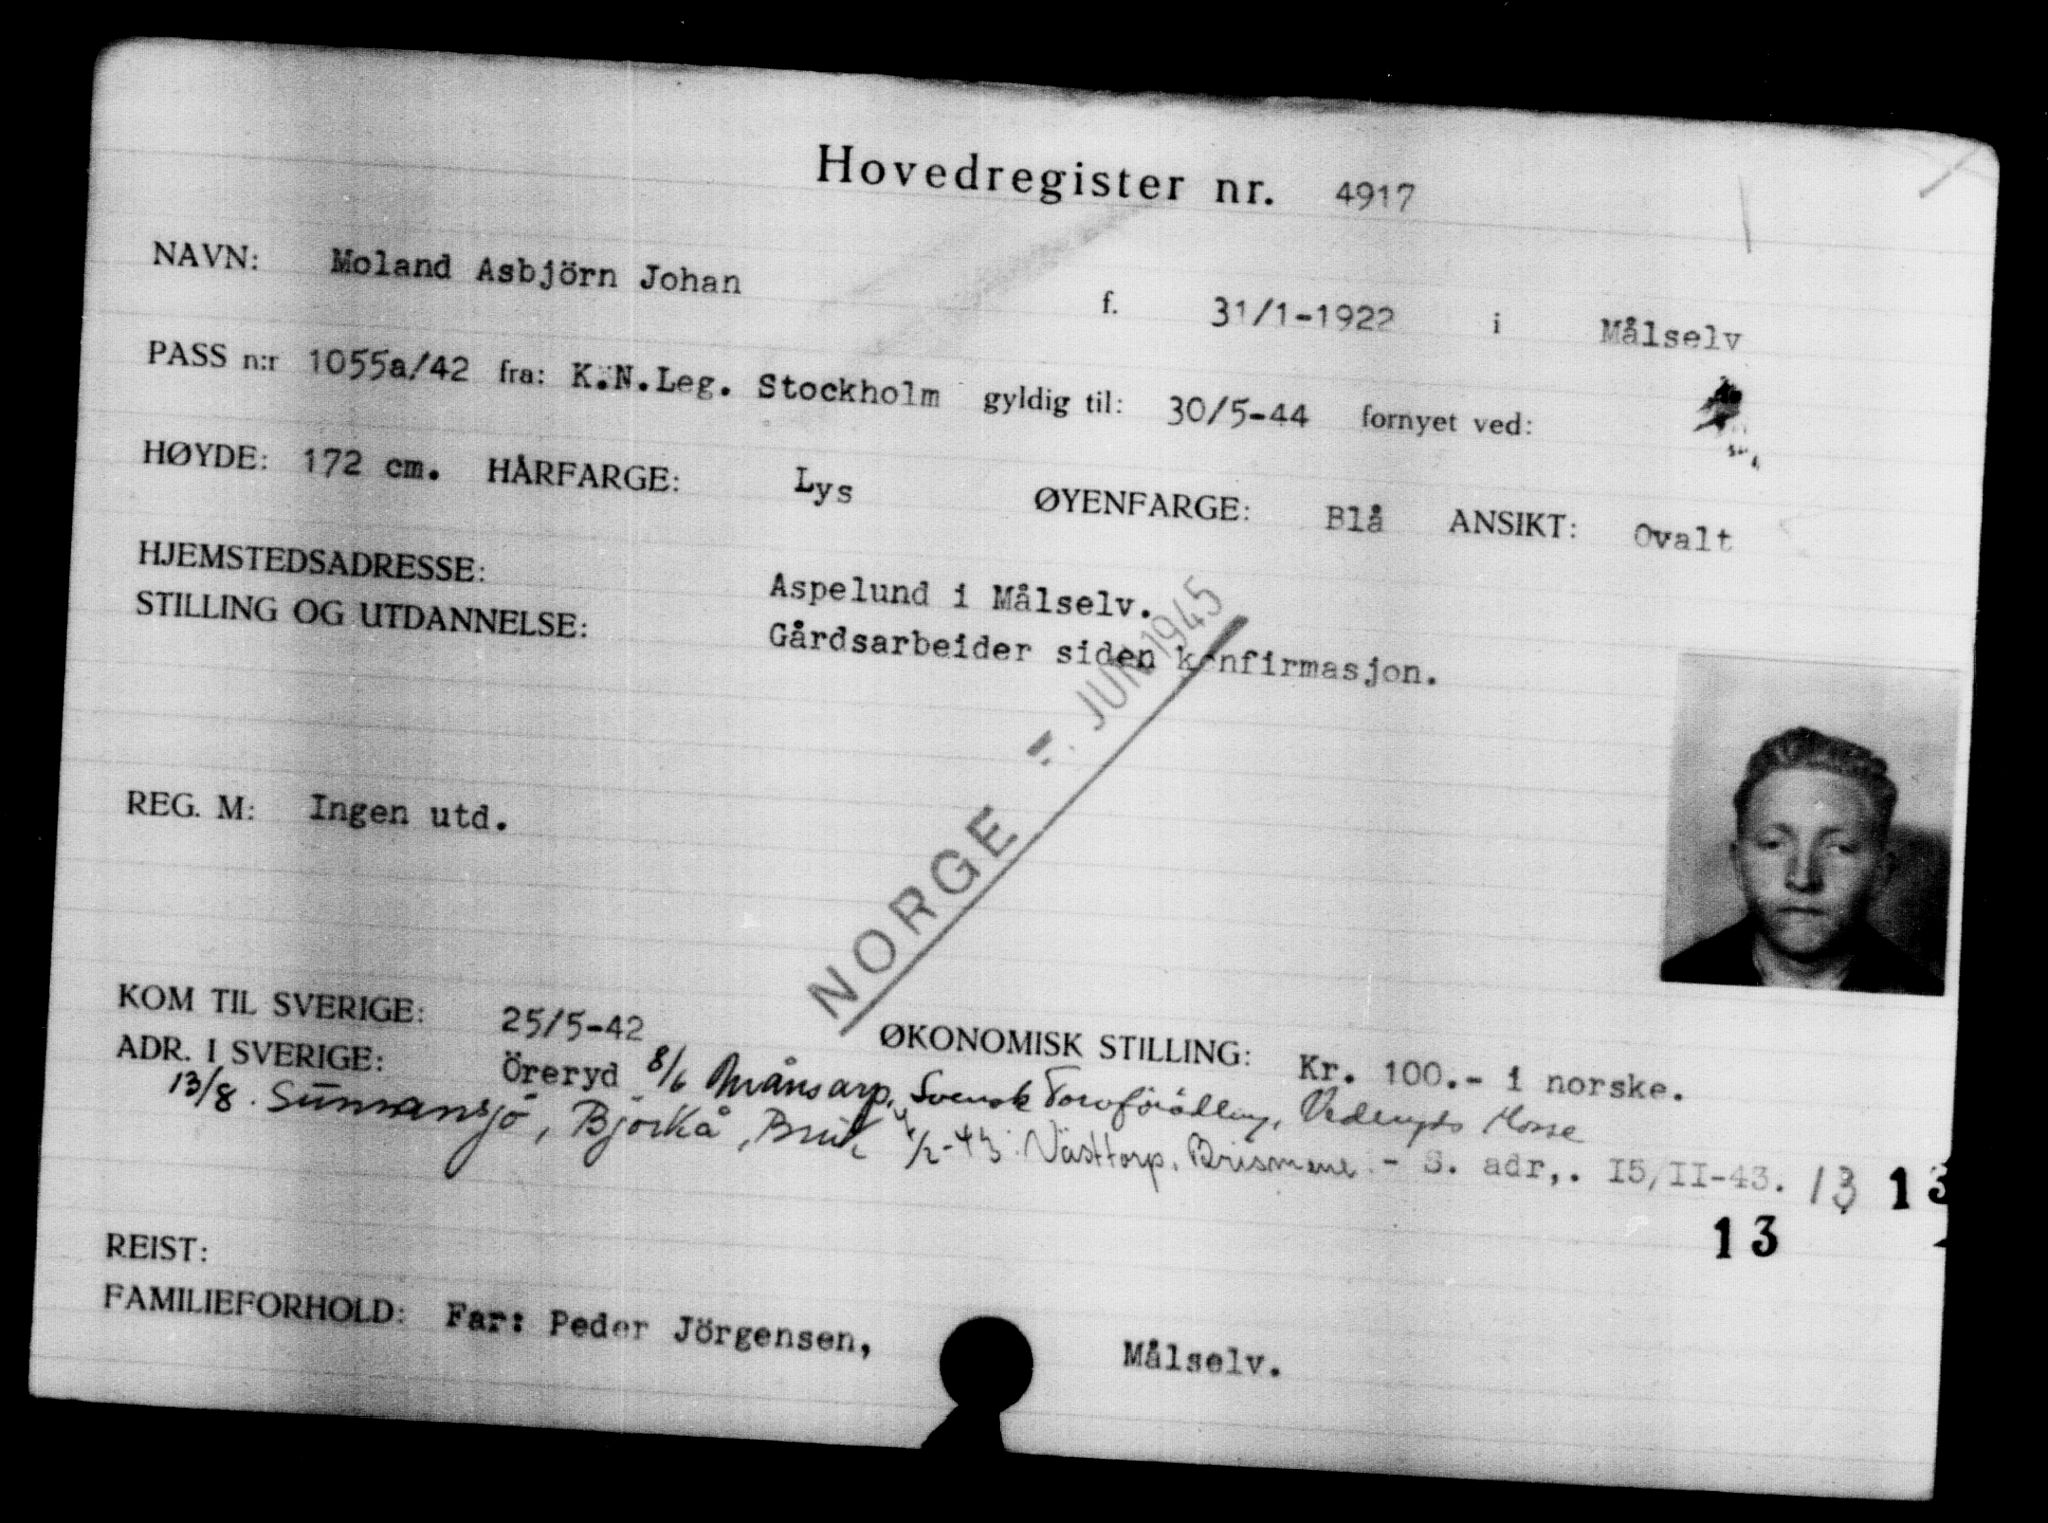 Hovedregister nr. 4917
NAVN: Moland Asbjörn Johan f. 31/1-1922 i Målselv
PASS n:r 1055a/42 fra: K.N.Leg. Stockholm gyldig til: 30/5-44 fornyet ved:
HØYDE: 172 cm. HÅRFARGE: Lys ØYENFARGE: Blå ANSIKT: Ovalt
HJEMSTEDSADRESSE: Aspelund i Målselv.
STILLING OG UTDANNELSE: Gårdsarbeider siden konfirmasjon.
NORGE JUN 1945
REG. M: Ingen utd.
KOM TIL SVERIGE: 25/5-42 ØKONOMISK STILLING: Kr. 100.- i norske.
ADR. I SVERIGE: Öreryd 8/6 Månsarp, Svensk Torvförädling, Mosse
13/8. Sunnansjö, Björkå, Bruk 1/2-43. Västtorp, Brismene - S. adr,. 15/II-43. 13 13
13
REIST:
FAMILIEFORHOLD: Far: Peder Jörgensen, Målselv.